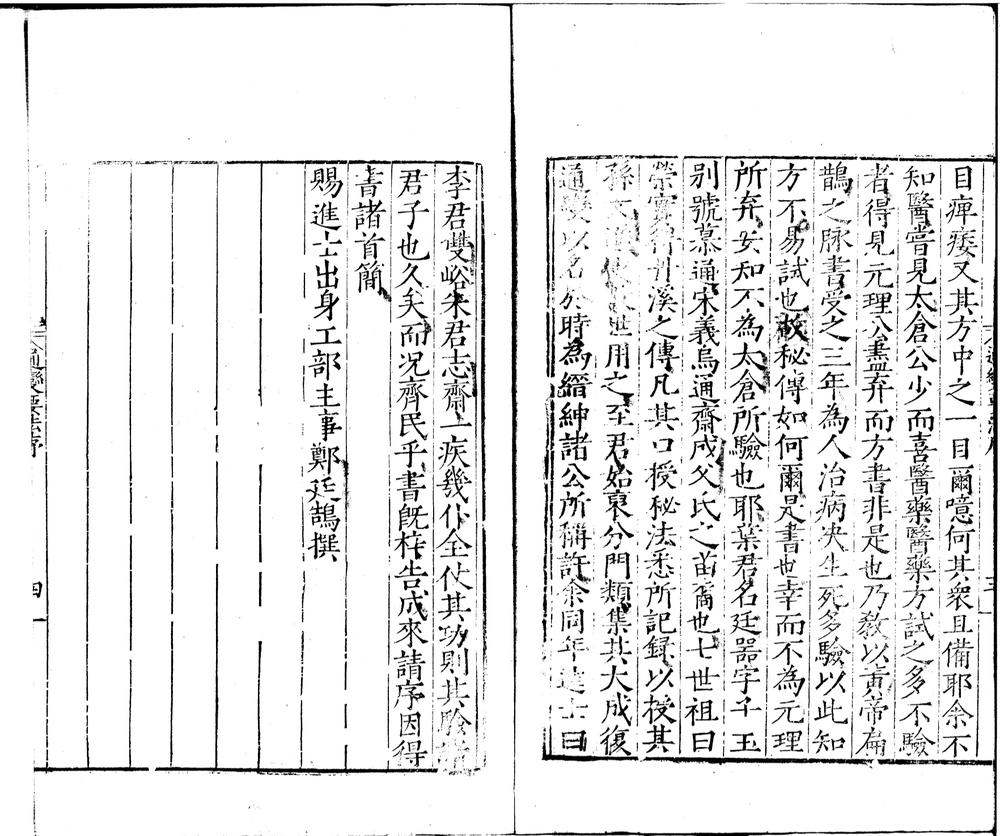 目痺痿又其方中之一目爾噫何其衆且備耶余不
知醫嘗見太倉公少而喜醫藥醫藥方試之多不驗
者得見元理公盡弃而方書非是也乃教以黃帝扁
鵲之脉書受之三年為人治病决生死多驗以此知
方不易試也故秘傳如何爾是書也幸而不為元理
所弃安知不為太倉所驗也耶葉君名廷器字子玉
别號慕通宋義烏通齋成父氏之苗裔也七世祖曰
榮實得丹溪之傳凡其口授秘法悉所記録以授其
孫 世用之至君始裒分門類集其大成復
通變以名於時為縉紳諸公所稱許余同年進士曰
三
李君雙峪朱君志齋一疾幾仆全仗其功則其驗
君子也久矣而况齊民乎書旣梓告成來請序因得
書諸首簡
賜進士出身工部主事鄭廷鵠撰
通變要法序
四